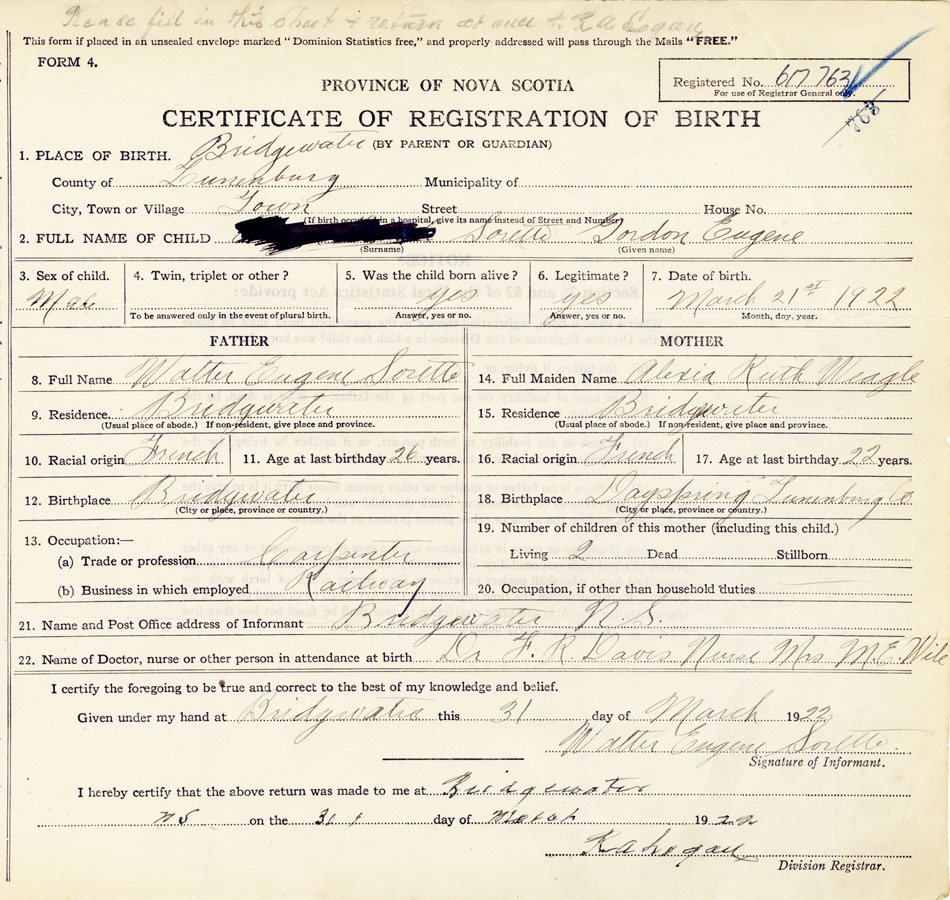 Please fill in this sheet & return at once to R A Logan
This form if placed in an unsealed envelope marked "Dominion Statistics free," and properly addressed will pass through the Mails "FREE."
FORM 4.
PROVINCE OF NOVA SCOTIA
Registered No.
For use of Registrar General only.
CERTIFICATE OF REGISTRATION OF BIRTH
(BY PARENT OR GUARDIAN)
1. PLACE OF BIRTH. Bridgewater
County of Lunenburg Municipality of
City, Town or Village Town Street House No.
(If birth occurred in a hospital, give its name instead of Street and Number)
2. FULL NAME OF CHILD Sorette Gordon Eugene
(Surname) (Given name)
3. Sex of child. 4. Twin, triplet or other? 5. Was the child born alive? 6. Legitimate? 7. Date of birth.
Mae yes yes March 21st 1922
To be answered only in the event of plural birth. Answer, yes or no. Answer, yes or no. Month, day, year.
FATHER MOTHER
8. Full Name Walter Eugene Sorette 14. Full Maiden Name Alexia Ruth Weagle
9. Residence. Bridgwater 15. Residence Bridgwater
(Usual place of abode.) If non-resident, give place and province. (Usual place of abode.) If non-resident, give place and province.
10. Racial origin French 11. Age at last birthday 26 years. 16. Racial origin French 17. Age at last birthday 22 years.
12. Birthplace Bridgwater 18. Birthplace Dayspring Lunenburg Co
(City or place, province or country.) (City or place, province or country.)
19. Number of children of this mother (including this child.)
13. Occupation:—
(a) Trade or profession Carpenter Living 2 Dead Stillborn
(b) Business in which employed Railway 20. Occupation, if other than household duties
21. Name and Post Office address of Informant Bridgewater N.S.
22. Name of Doctor, nurse or other person in attendance at birth Dr F. R Davis Nurse Mrs M.E. Wile
I certify the foregoing to be true and correct to the best of my knowledge and belief.
Given under my hand at Bridgwater this 31 day of March 1922
Walter Eugene Sorette
Signature of Informant.
I hereby certify that the above return was made to me at Bridgewater
NS on the 31 day of March 1922
R A Logan
Division Registrar.